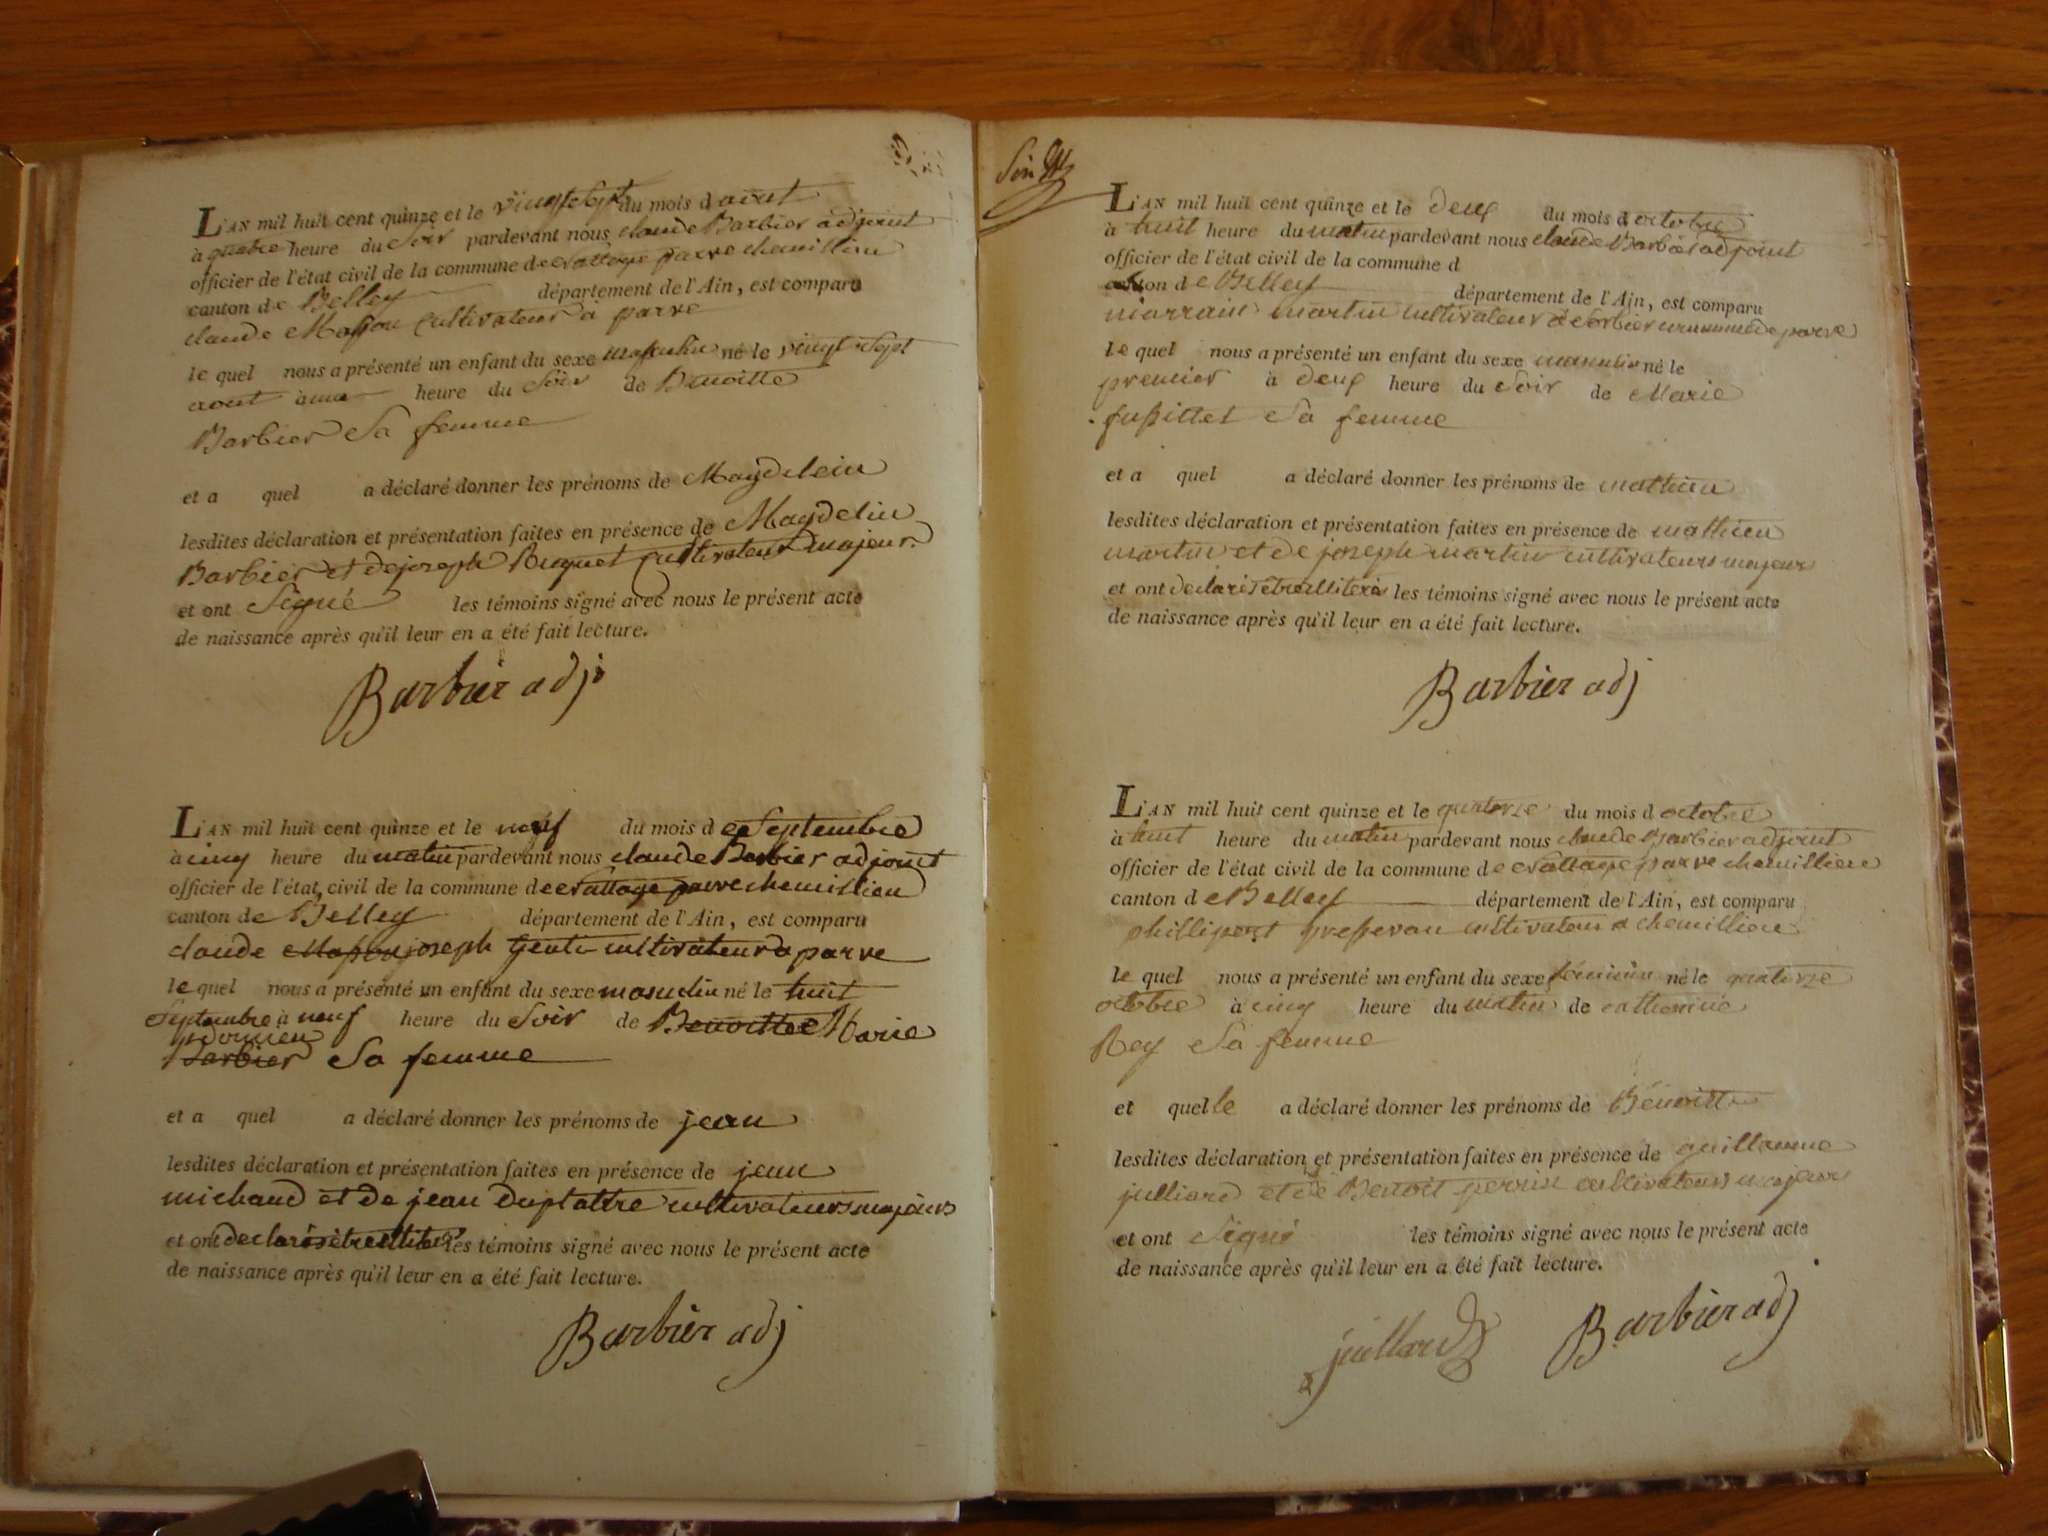 L'AN mil huit cent quinze et le vingt Sept du mois d aout
à quatre heure du Soir pardevant nous claude Barbier adjoint
officier de l'état civil de la commune de parve chemillieu
canton de Belley département de l'Ain, est comparu
claude cultivateur a parve
le quel nous a présenté un enfant du sexe masculin né le vingt Sept
aout à une heure du Soir de Benoitte
Barbier Sa femme
et a quel a déclaré donner les prénoms de Magdelein
lesdites déclaration et présentation faites en présence de Magdelin
Barbier et de joseph Buquet cultivateurs majeur
et ont Signé les témoins signé avec nous le présent acte
de naissance après qu'il leur en a été fait lecture.
Barbier adj
L'AN mil huit cent quinze et le neuf du mois de Septembre
à cinq heure du matin pardevant nous claude Barbier adjoint
officier de l'état civil de la commune de parve chemillieu
canton de Belley département de l'Ain, est comparu
claude joseph cultivateur a parve
le quel nous a présenté un enfant du sexe masculin né le huit
Septembre à neuf heure du Soir de Benoitte Marie
Barbier Sa femme
et a quel a déclaré donner les prénoms de jean
lesdites déclaration et présentation faites en présence de jean
michaud et de jean duplattre cultivateurs majeurs
et ont declarés les témoins signé avec nous le présent acte
de naissance après qu'il leur en a été fait lecture.
Barbier adj
L'AN mil huit cent quinze et le deux du mois d octobre
à huit heure du matin pardevant nous claude Barbier adjoint
officier de l'état civil de la commune d
canton de Belley département de l'Ain, est comparu
martin cultivateur a commune de parve
le quel nous a présenté un enfant du sexe masculin né le
premier à deux heure du Soir de Marie
Sa femme
et a quel a déclaré donner les prénoms de mathieu
lesdites déclaration et présentation faites en présence de mathieu
martin et de joseph martin cultivateurs majeurs
et ont declarés les témoins signé avec nous le présent acte
de naissance après qu'il leur en a été fait lecture.
Barbier adj
L'AN mil huit cent quinze et le quatorze du mois d octobre
à huit heure du matin pardevant nous claude Barbier adjoint
officier de l'état civil de la commune de parve chemillieu
canton de Belley département de l'Ain, est comparu
cultivateur a chemillieu
le quel nous a présenté un enfant du sexe féminin né le quatorze
octobre à cinq heure du matin de catherine
Rey Sa femme
et quelle a déclaré donner les prénoms de Bénoitte
lesdites déclaration et présentation faites en présence de guillaume
julliard et de Benoit perrin cultivateurs majeurs
et ont Signé les témoins signé avec nous le présent acte
de naissance après qu'il leur en a été fait lecture.
juillard Barbier adj